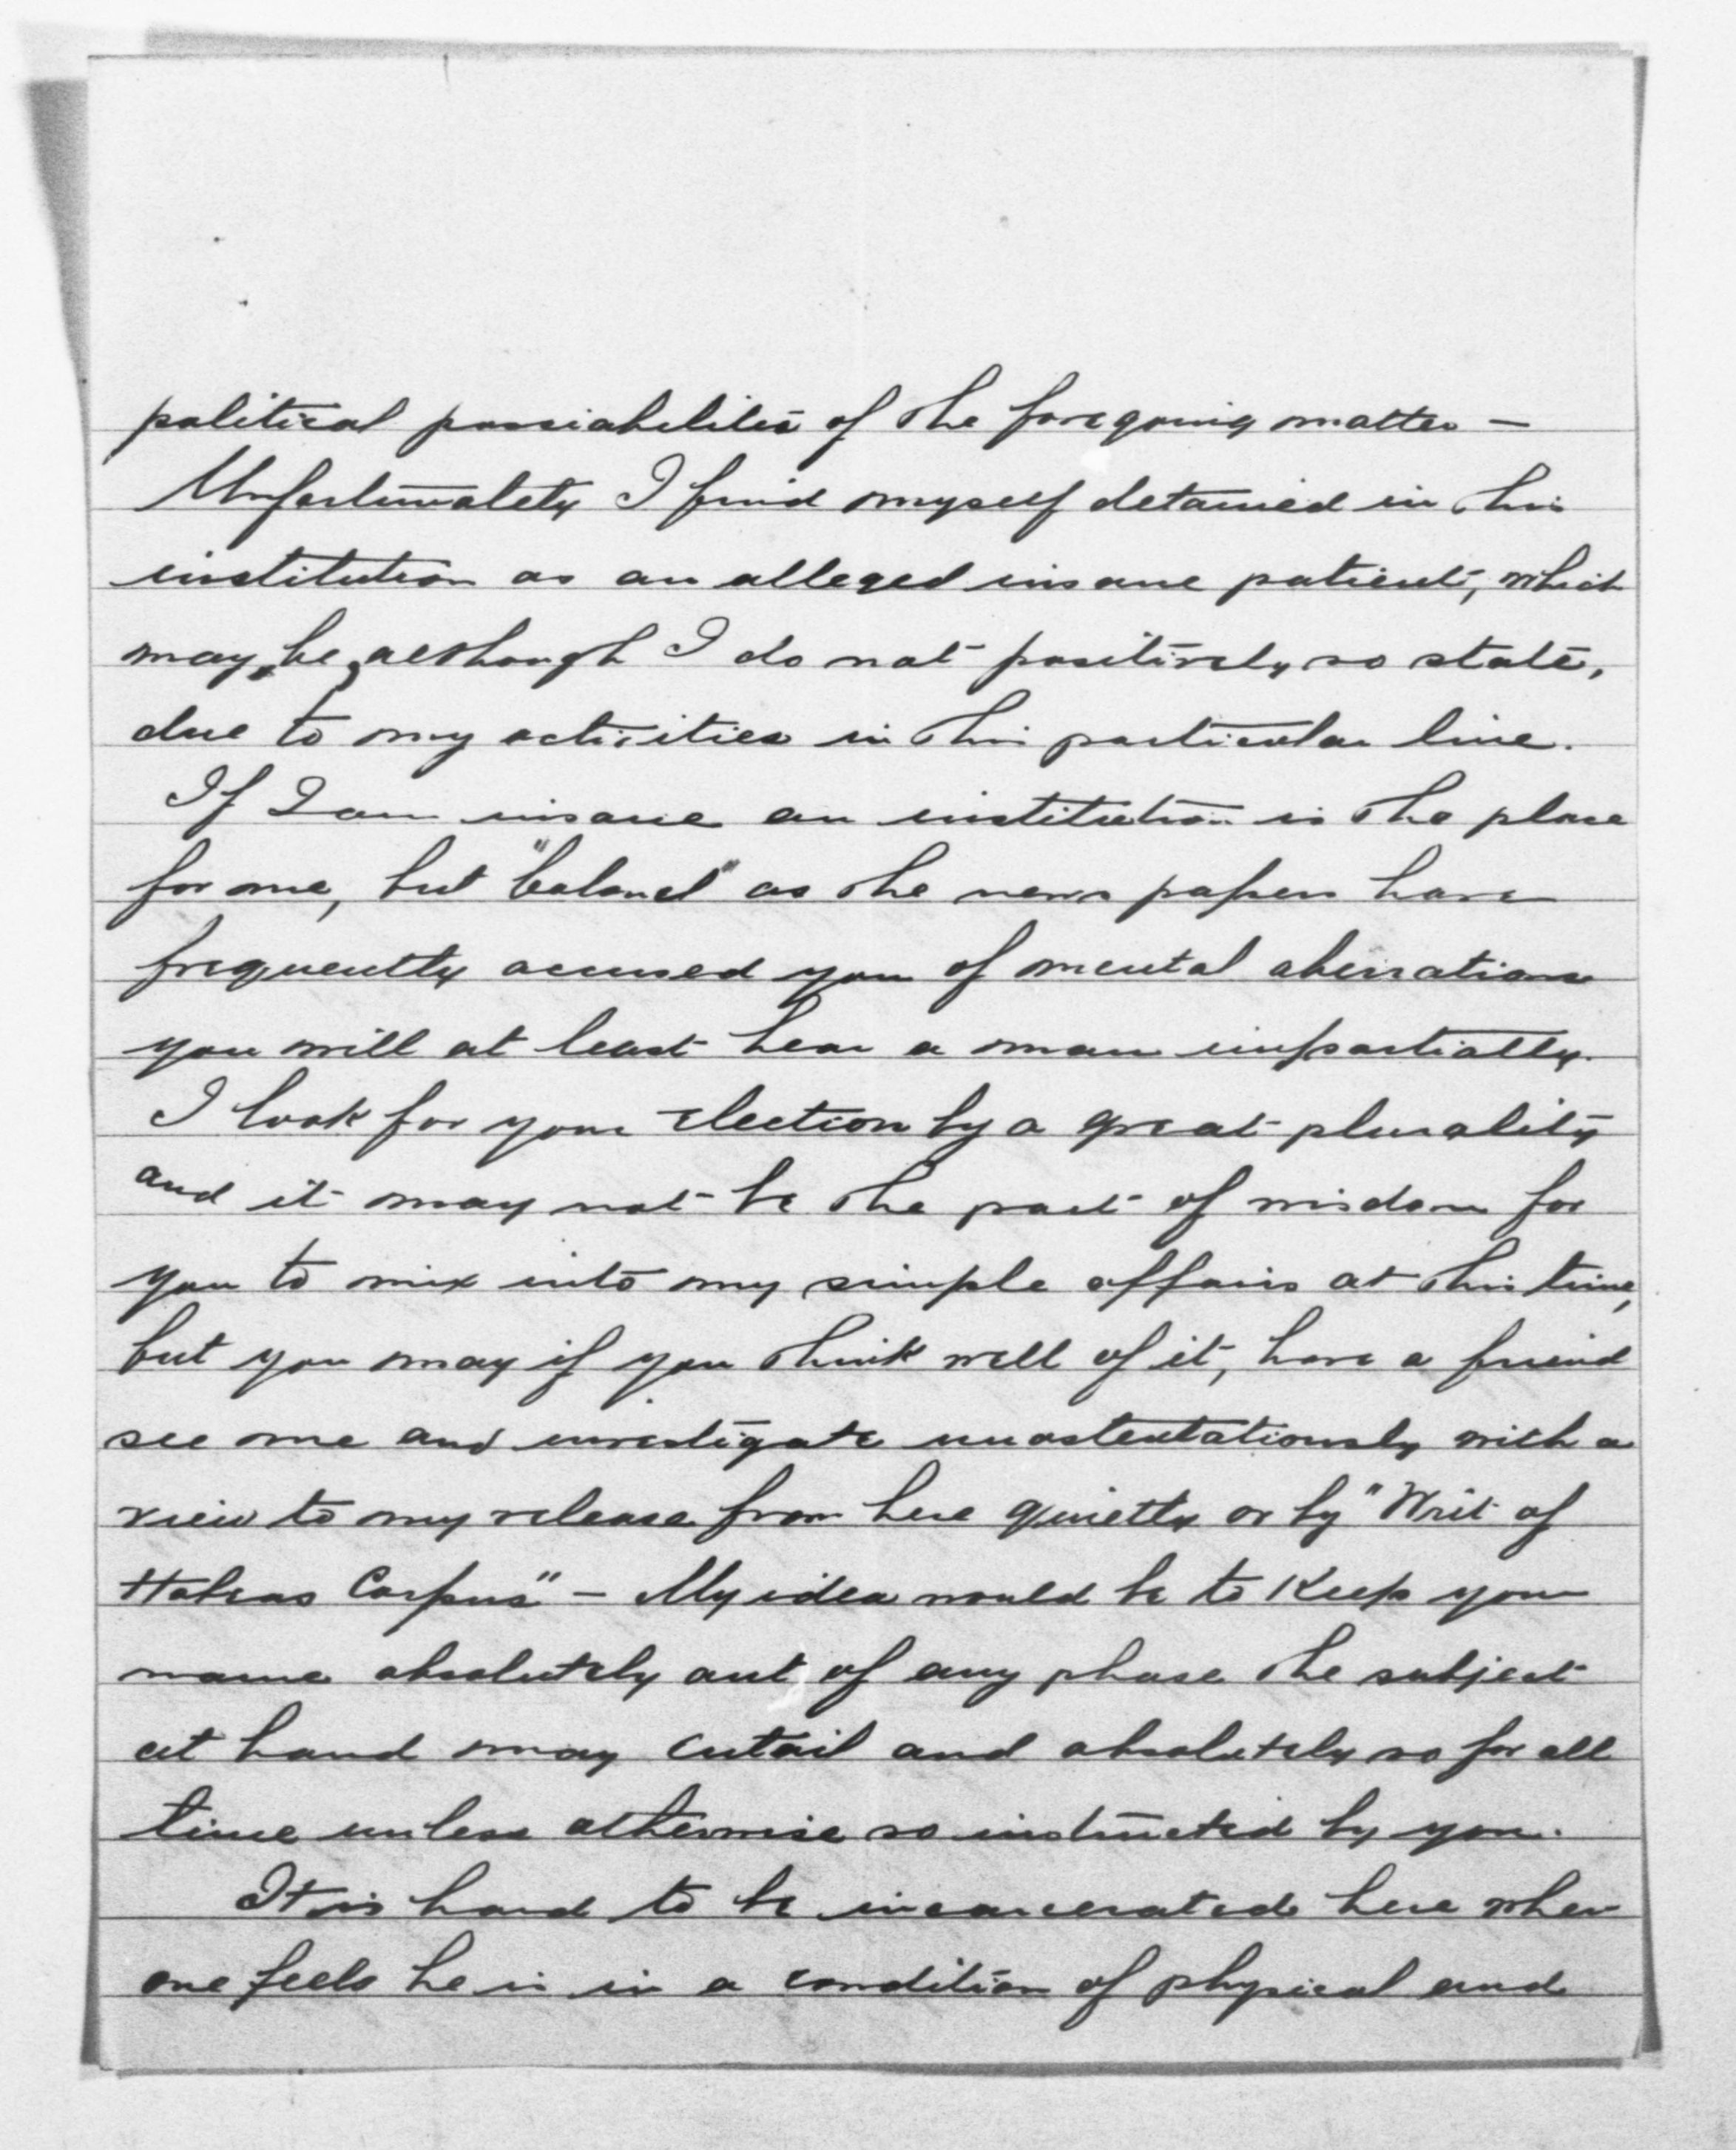 political possiabilities of the foregoing matter —
Unfortunately I find myself detained in this
institution as an alleged insane patient, which
may be, although I do not positively so state,
due to my activities in this particular line.
If I am insane an institution is the place
for me, but "Colonel" as the news papers have
frequently accused you of mental aberrations
you will at least hear a man impartially.
I look for your election by a great plurality
and it may not be the part of wisdom for
you to mix into my simple affairs at this time,
but you may if you think well of it, have a friend
see me and investigate unostentatiously with a
view to my release from here quietly or by "Writ of
Habeas Corpus" — My idea would be to keep your
name absolutely out of any phase the subject
at hand may entail and absolutely so for all
time unless otherwise so instructed by you.
It is hard to be incarcerated here when
one feels he is in a condition of physical and